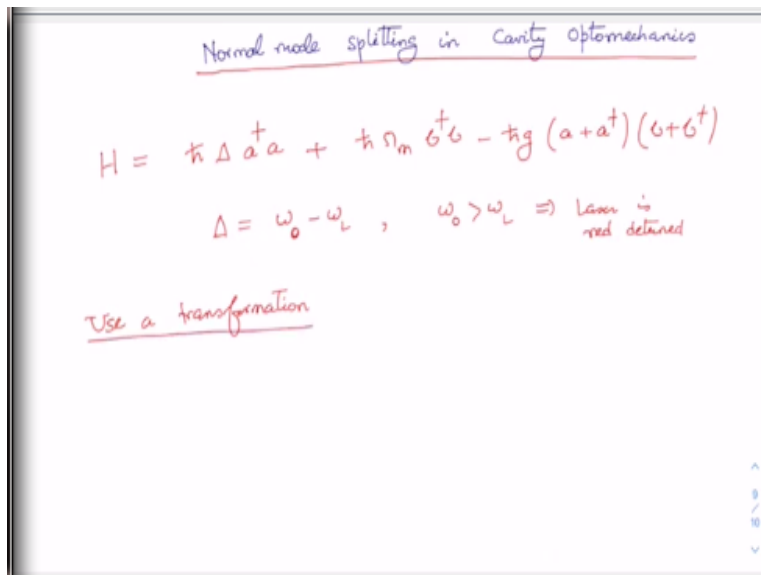 Normal mode splitting in Cavity Optomechanics
H = ħ Δ a†a + ħ Ωm b†b - ħg (a+a†)(b+b†)
Δ = ω₀ - ωL , ω₀ > ωL ⇒ Laser is
red detuned
Use a transformation
9
/
10